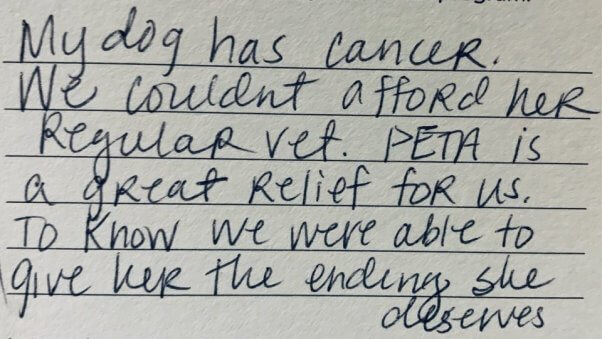 My dog has cancer.
We couldnt afford her
Regular vet. PETA is
a great relief for us.
To know we were able to
give her the ending she
deserves